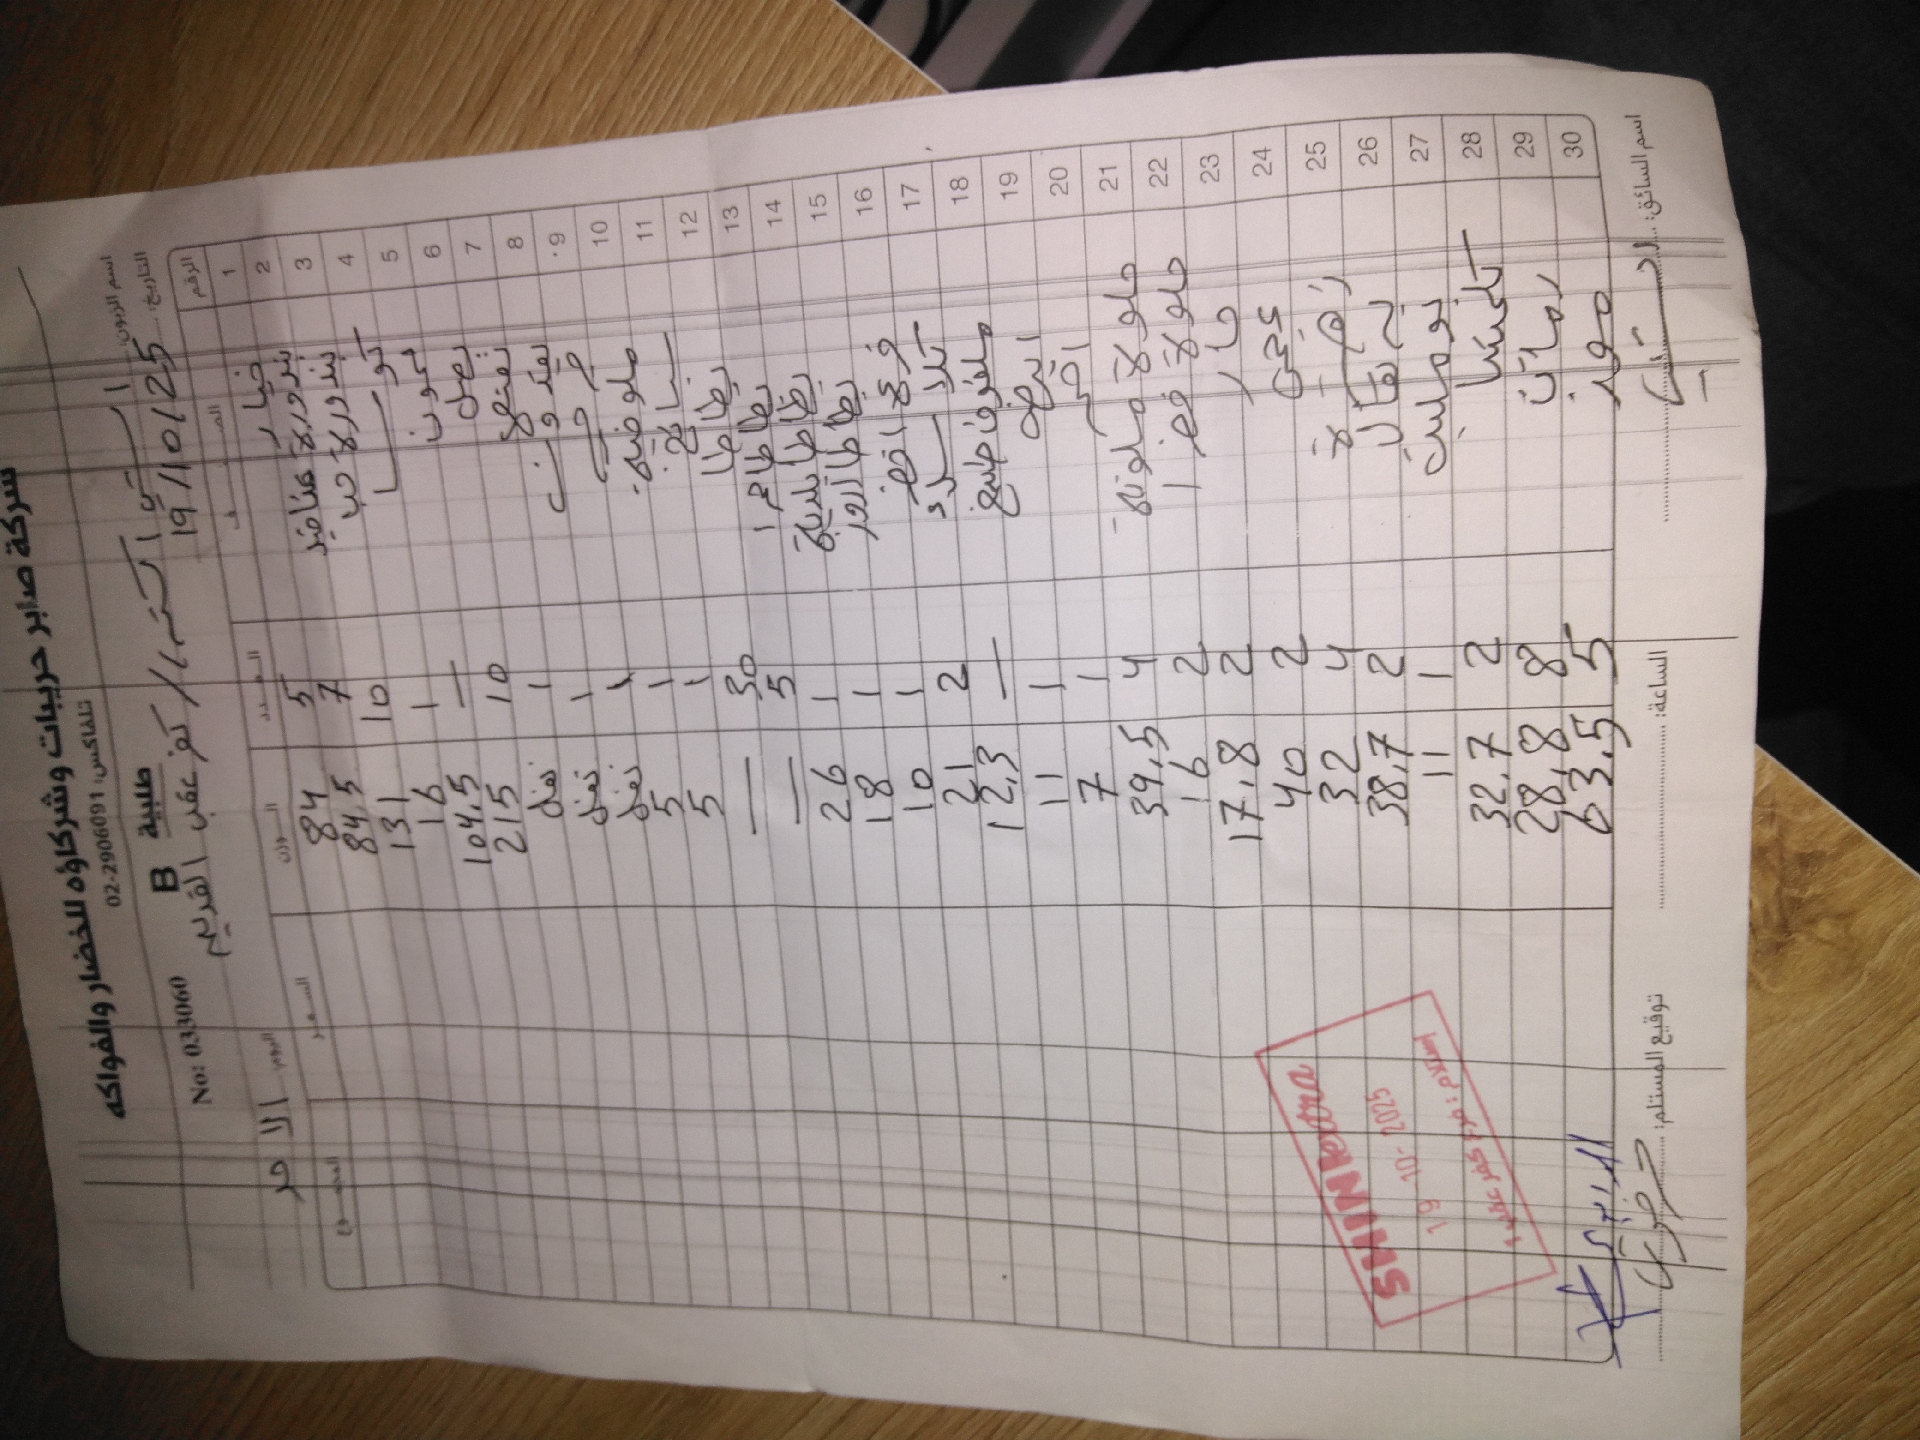 شركة صابر حريبات وشركاؤه للخضار والفواكه
تلفاكس: 02-2906091
طلبية
B
No: 033060
اسم الزبون: / كفر عقب القديم
التاريخ: 19/10/25 اليوم الاحد
الرقم الصنف العدد الوزن السعر المجموع
1 خيار 5 84
2 بندورة عناقيد 7 84,5
3 بندورة حب 10 131
4 كوسا 1 16
5 ليمون — 104,5
6 بصل 10 215
7 نعنع 1
8 بقدونس 1
9 1
10 ملوخية 1 5
11 سبانخ 1 5
12 بطاطا 30 —
13 بطاطا 5 —
14 بطاطا 1 26
15 بطاطا 1 18
16 قرع اخضر 1 10
17 2 21
18 ملفوف — 12,3
19 ابيض 1 11
20 1 7
21 حلوة ملونة 4 39,5
22 حلوة خضرا 2 16
23 حار 2 17,8
24 2 40
25 4 32
26 برتقال 2 38,7
27 بوملي 1 11
28 كلمنتينا 2 32,7
29 رمان 8 28,8
30 موز 5 63,5
اسم السائق:
الساعة:
توقيع المستلم:
SHINI
19-10-2025
استلام: فرع كفر عقب